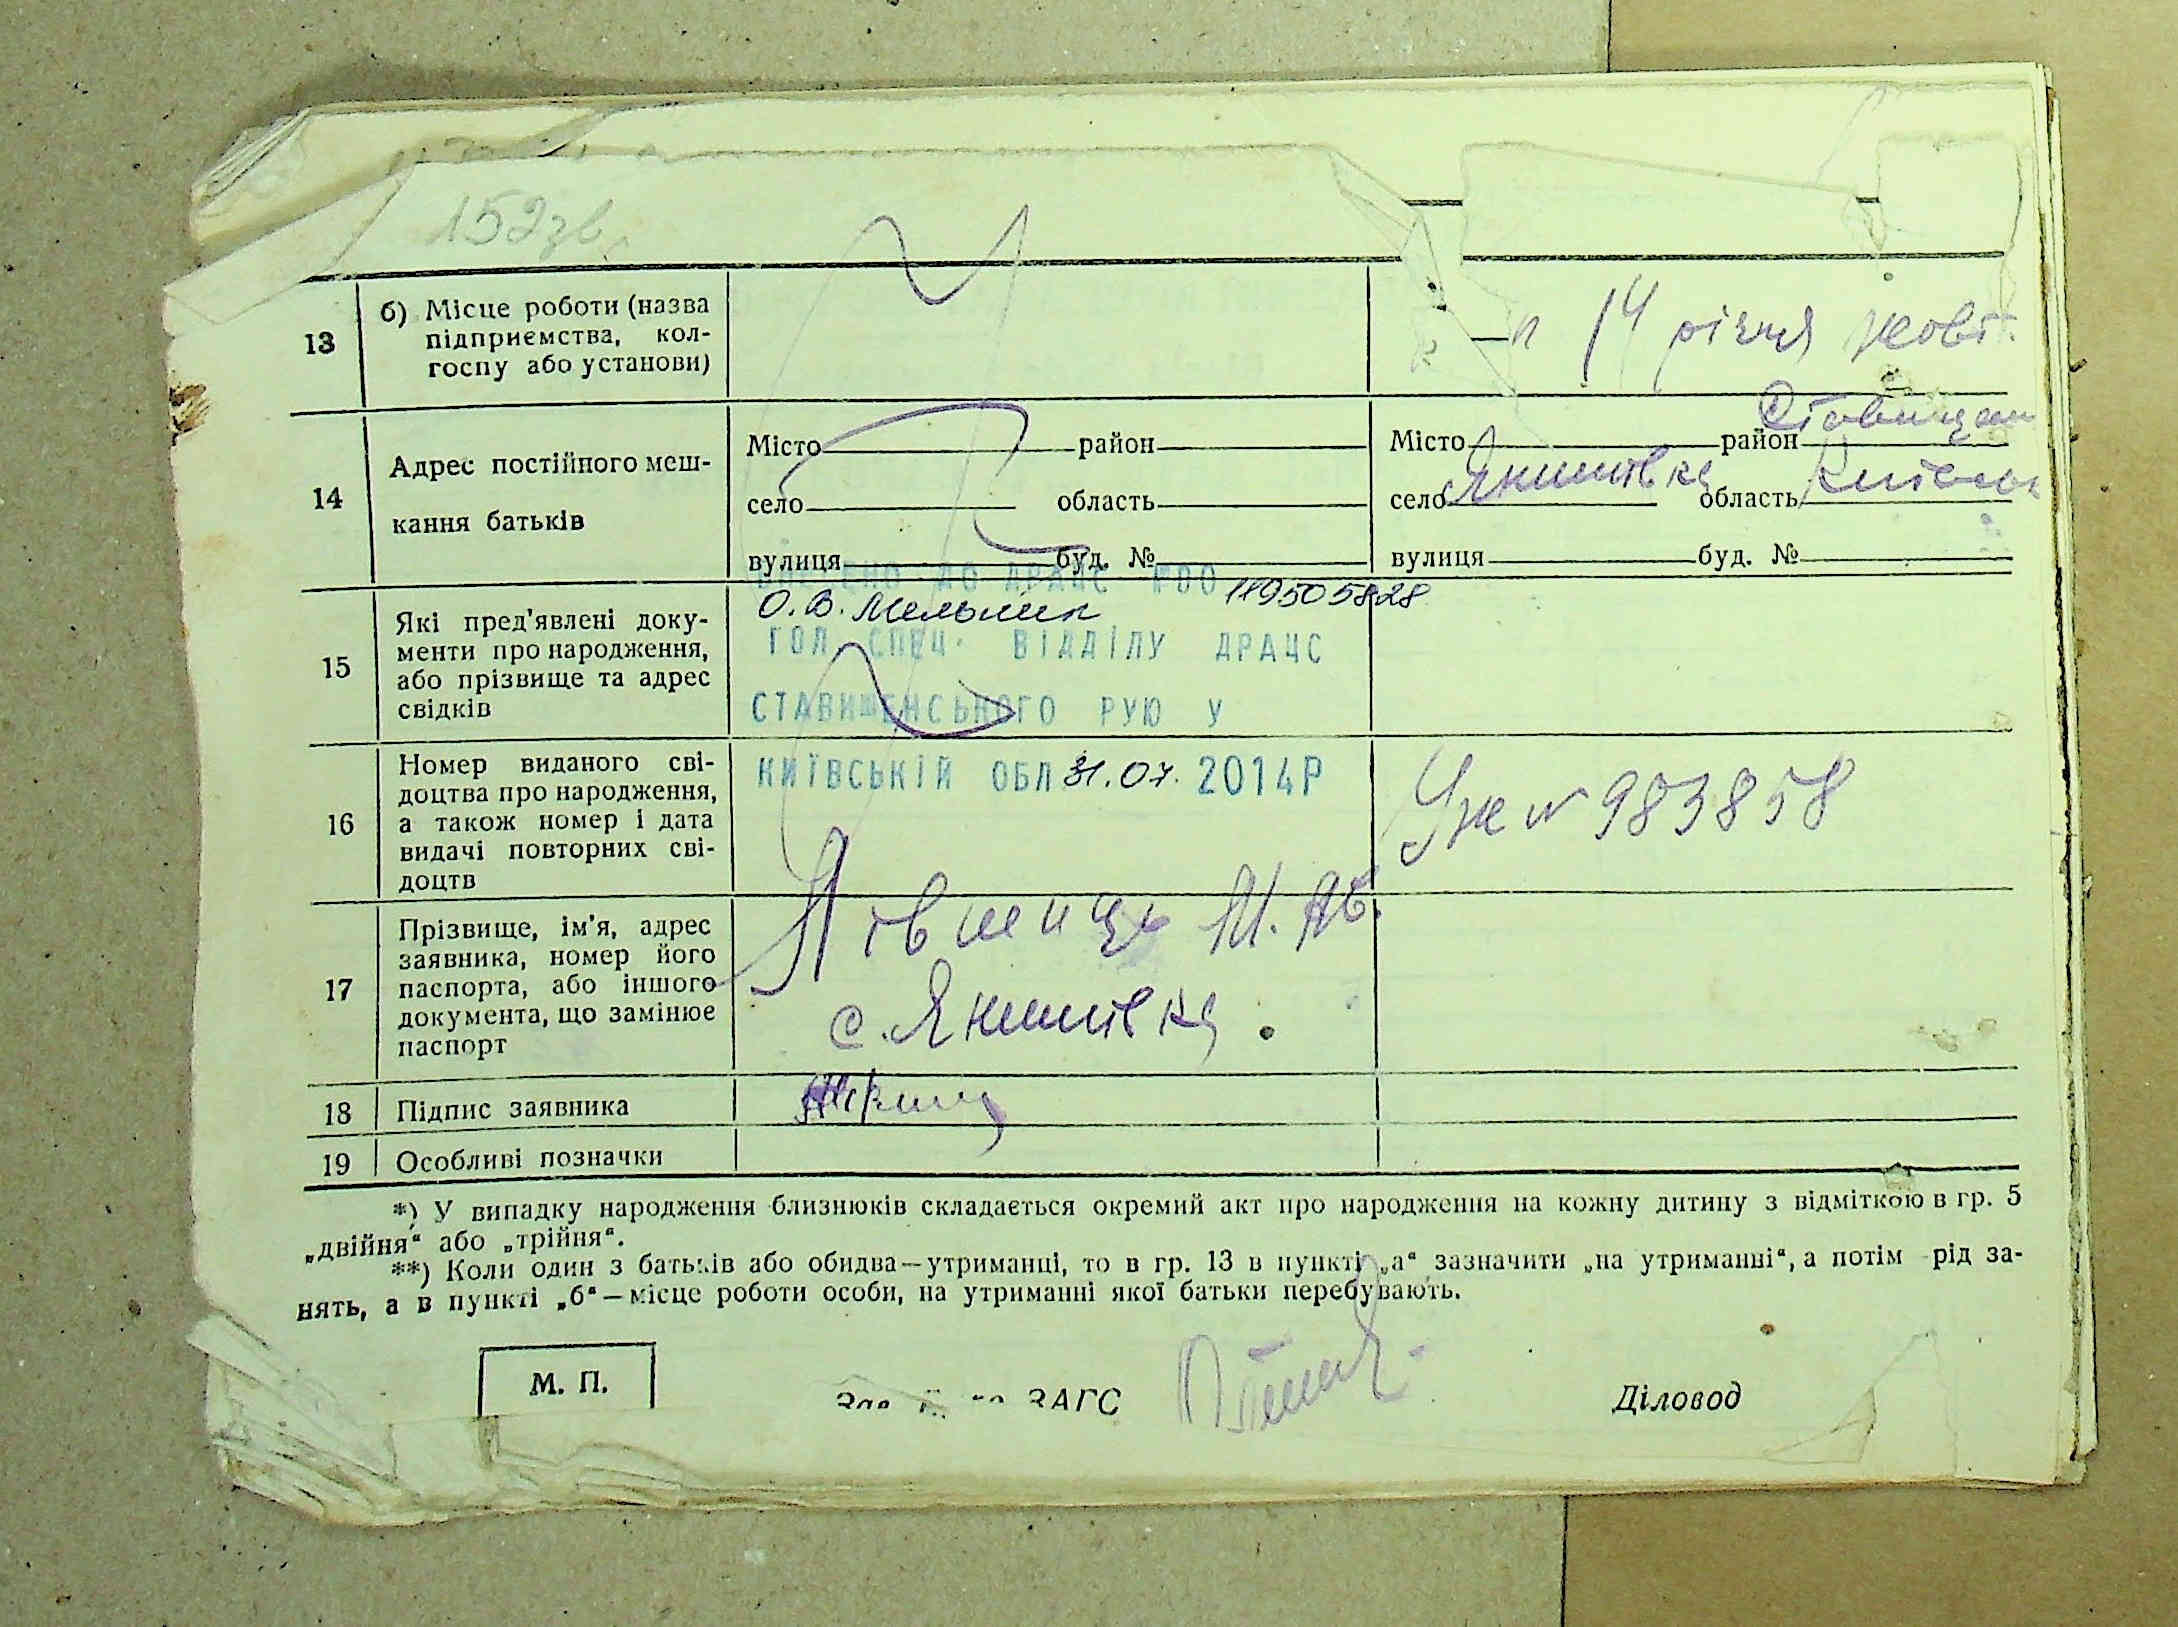 152зв
13 б) Місце роботи (назва
підприємства, кол-
госпу або установи)
14 річчя жовт.
14 Адрес постійного меш-
кання батьків
Місто район
село область
вулиця буд. №
Місто район Ставищан
село Якимівка область Київськ
вулиця буд. №
15 Які пред'явлені доку-
менти про народження,
або прізвище та адрес
свідків
ВНЕСЕНО ДО ДРАЦС №00 119505828
О.В. Мельник
ГОЛ СПЕЦ. ВІДДІЛУ ДРАЦС
СТАВИЩЕНСЬКОГО РУЮ У
КИЇВСЬКІЙ ОБЛ 31.07. 2014Р
16 Номер виданого сві-
доцтва про народження,
а також номер і дата
видачі повторних сві-
доцтв
№ 983858
17 Прізвище, ім'я, адрес
заявника, номер його
паспорта, або іншого
документа, що замінює
паспорт
с. Якимівка.
18 Підпис заявника
19 Особливі позначки
*) У випадку народження близнюків складається окремий акт про народження на кожну дитину з відміткою в гр. 5
„двійня“ або „трійня“.
**) Коли один з батьків або обидва—утриманці, то в гр. 13 в пункті „а“ зазначити „на утриманні“, а потім рід за-
нять, а в пункті „б“—місце роботи особи, на утриманні якої батьки перебувають.
М. П.
ЗАГС
Діловод